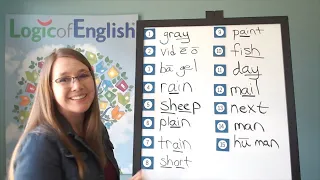 Logic of English
1 gray
2 vid ē ō
3 bā gel
4 rain
5 sheep
6 plain
7 train
8 short
9 paint
10 fish
11 day
12 mail
13 next
14 man
15 hū man